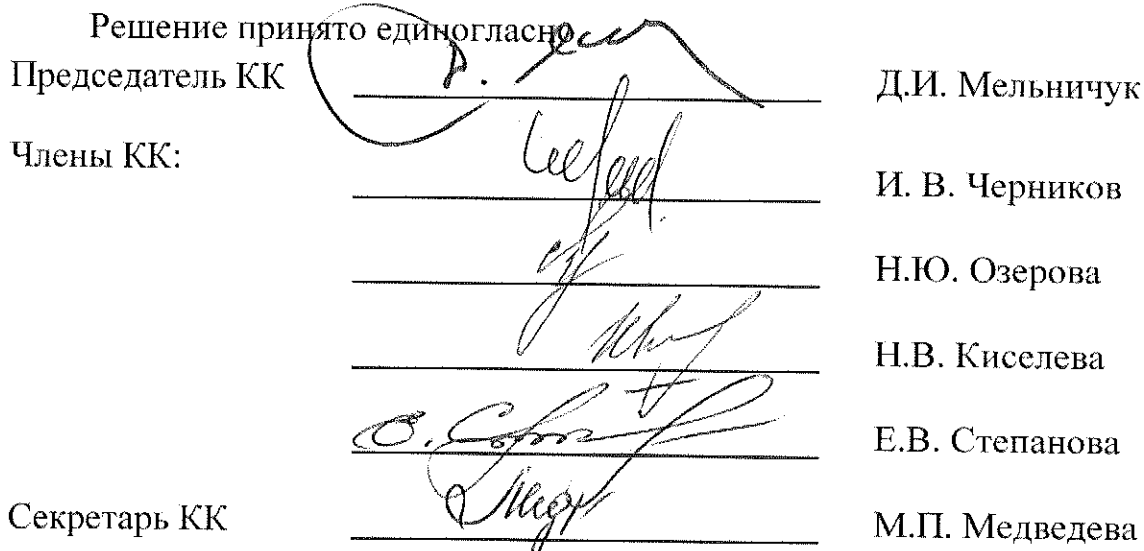 Решение принято единогласно
Председатель КК Д.И. Мельничук
Члены КК:
И. В. Черников
Н.Ю. Озерова
Н.В. Киселева
Е.В. Степанова
Секретарь КК М.П. Медведева